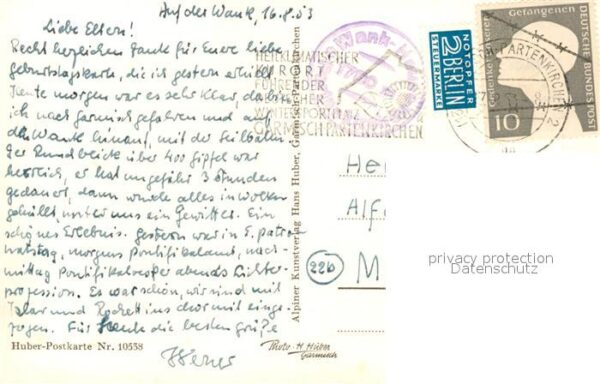 Auf der Wank, 16.8.53
Liebe Eltern!
Recht herzlichen Dank für Eure liebe
Geburtstagskarte, die ich gestern erhielt.
Heute morgen war es sehr klar, da bin
ich nach Garmisch gefahren und auf
die Wank hinauf, mit der Seilbahn
Der Rundblick über 400 Gipfel war
herrlich, er hat ungefähr 3 Stunden
gedauert, dann wurde alles in Wolken
gehüllt, unter uns ein Gewitter. Ein
schönes Erlebnis. Gestern war in E. Patro
natstag, morgens Pontifikalamt, nach-
mittag Pontifikalvesper abends Lichter-
prozession. Es war schön, wir sind mit
Talar und Rochett ins Chor mit einge-
zogen. Für heute die besten Grüße
Huber-Postkarte Nr. 10538
Alpiner Kunstverlag Hans Huber, Garmisch-Partenkirchen
HEILKLIMATISCHER
KURORT
FÜHRENDER
DEUTSCHER
WINTERSPORTPLATZ
GARMISCH PARTENKIRCHEN
Wank
1780
NOTOPFER
2 BERLIN
STEUERMARKE
Gedenket unserer Gefangenen
DEUTSCHE BUNDESPOST
10
PARTENKIRCHEN 2
He
Alf
(22b) M
privacy protection
Datenschutz
Photo-H. Huber
Garmisch